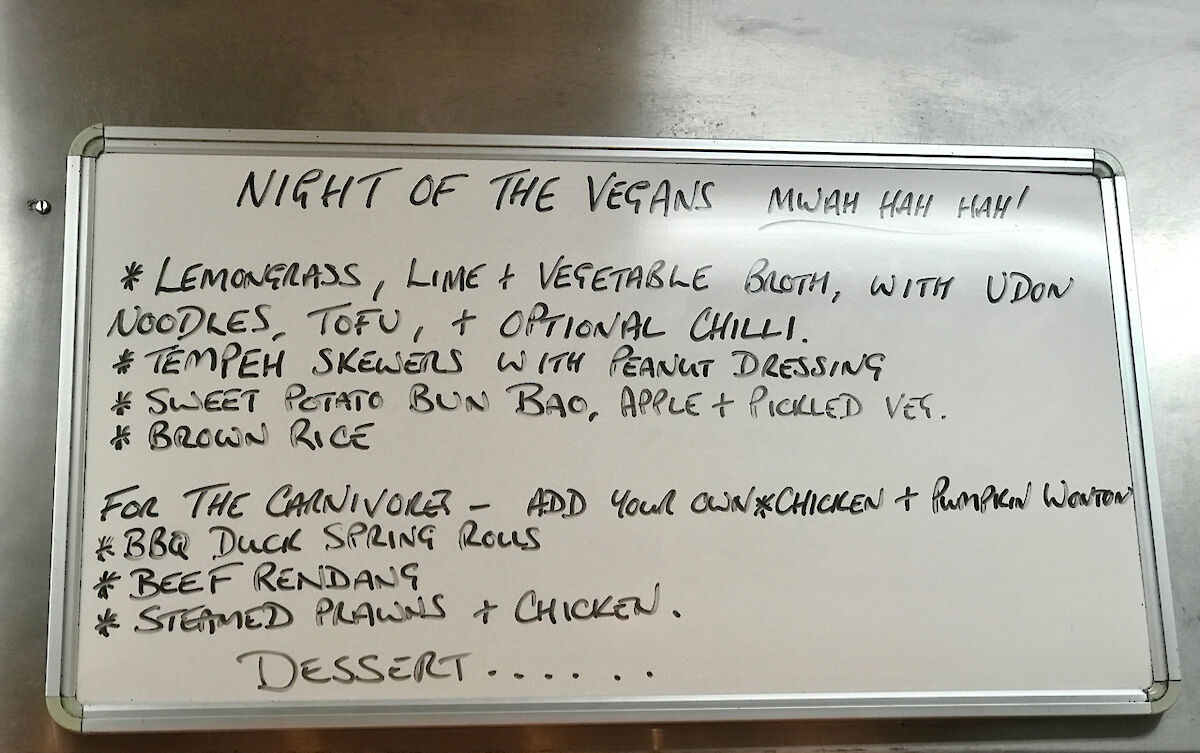 NIGHT OF THE VEGANS MWAH HAH HAH!
* LEMONGRASS, LIME + VEGETABLE BROTH, WITH UDON
NOODLES, TOFU, + OPTIONAL CHILLI.
* TEMPEH SKEWERS WITH PEANUT DRESSING
* SWEET POTATO BUN BAO, APPLE + PICKLED VEG.
* BROWN RICE
FOR THE CARNIVORES - ADD YOUR OWN *CHICKEN + PUMPKIN WONTON
* BBQ DUCK SPRING ROLLS
* BEEF RENDANG
* STEAMED PRAWNS + CHICKEN.
DESSERT......